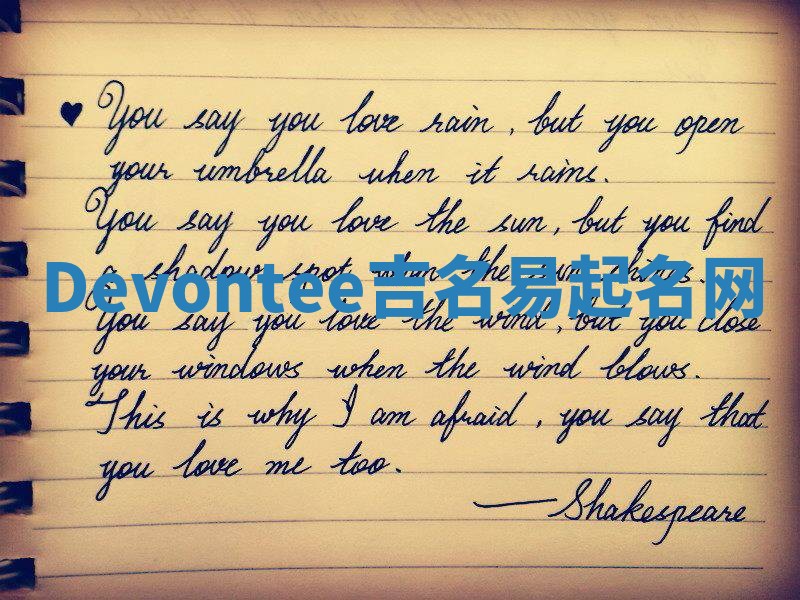 ♥ You say you love rain, but you open
your umbrella when it rains.
You say you love the sun, but you find
a shadow spot when the sun shines.
Devontee吉名易起名网
You say you love the wind, but you close
your windows when the wind blows.
This is why I am afraid, you say that
you love me too.
—Shakespeare